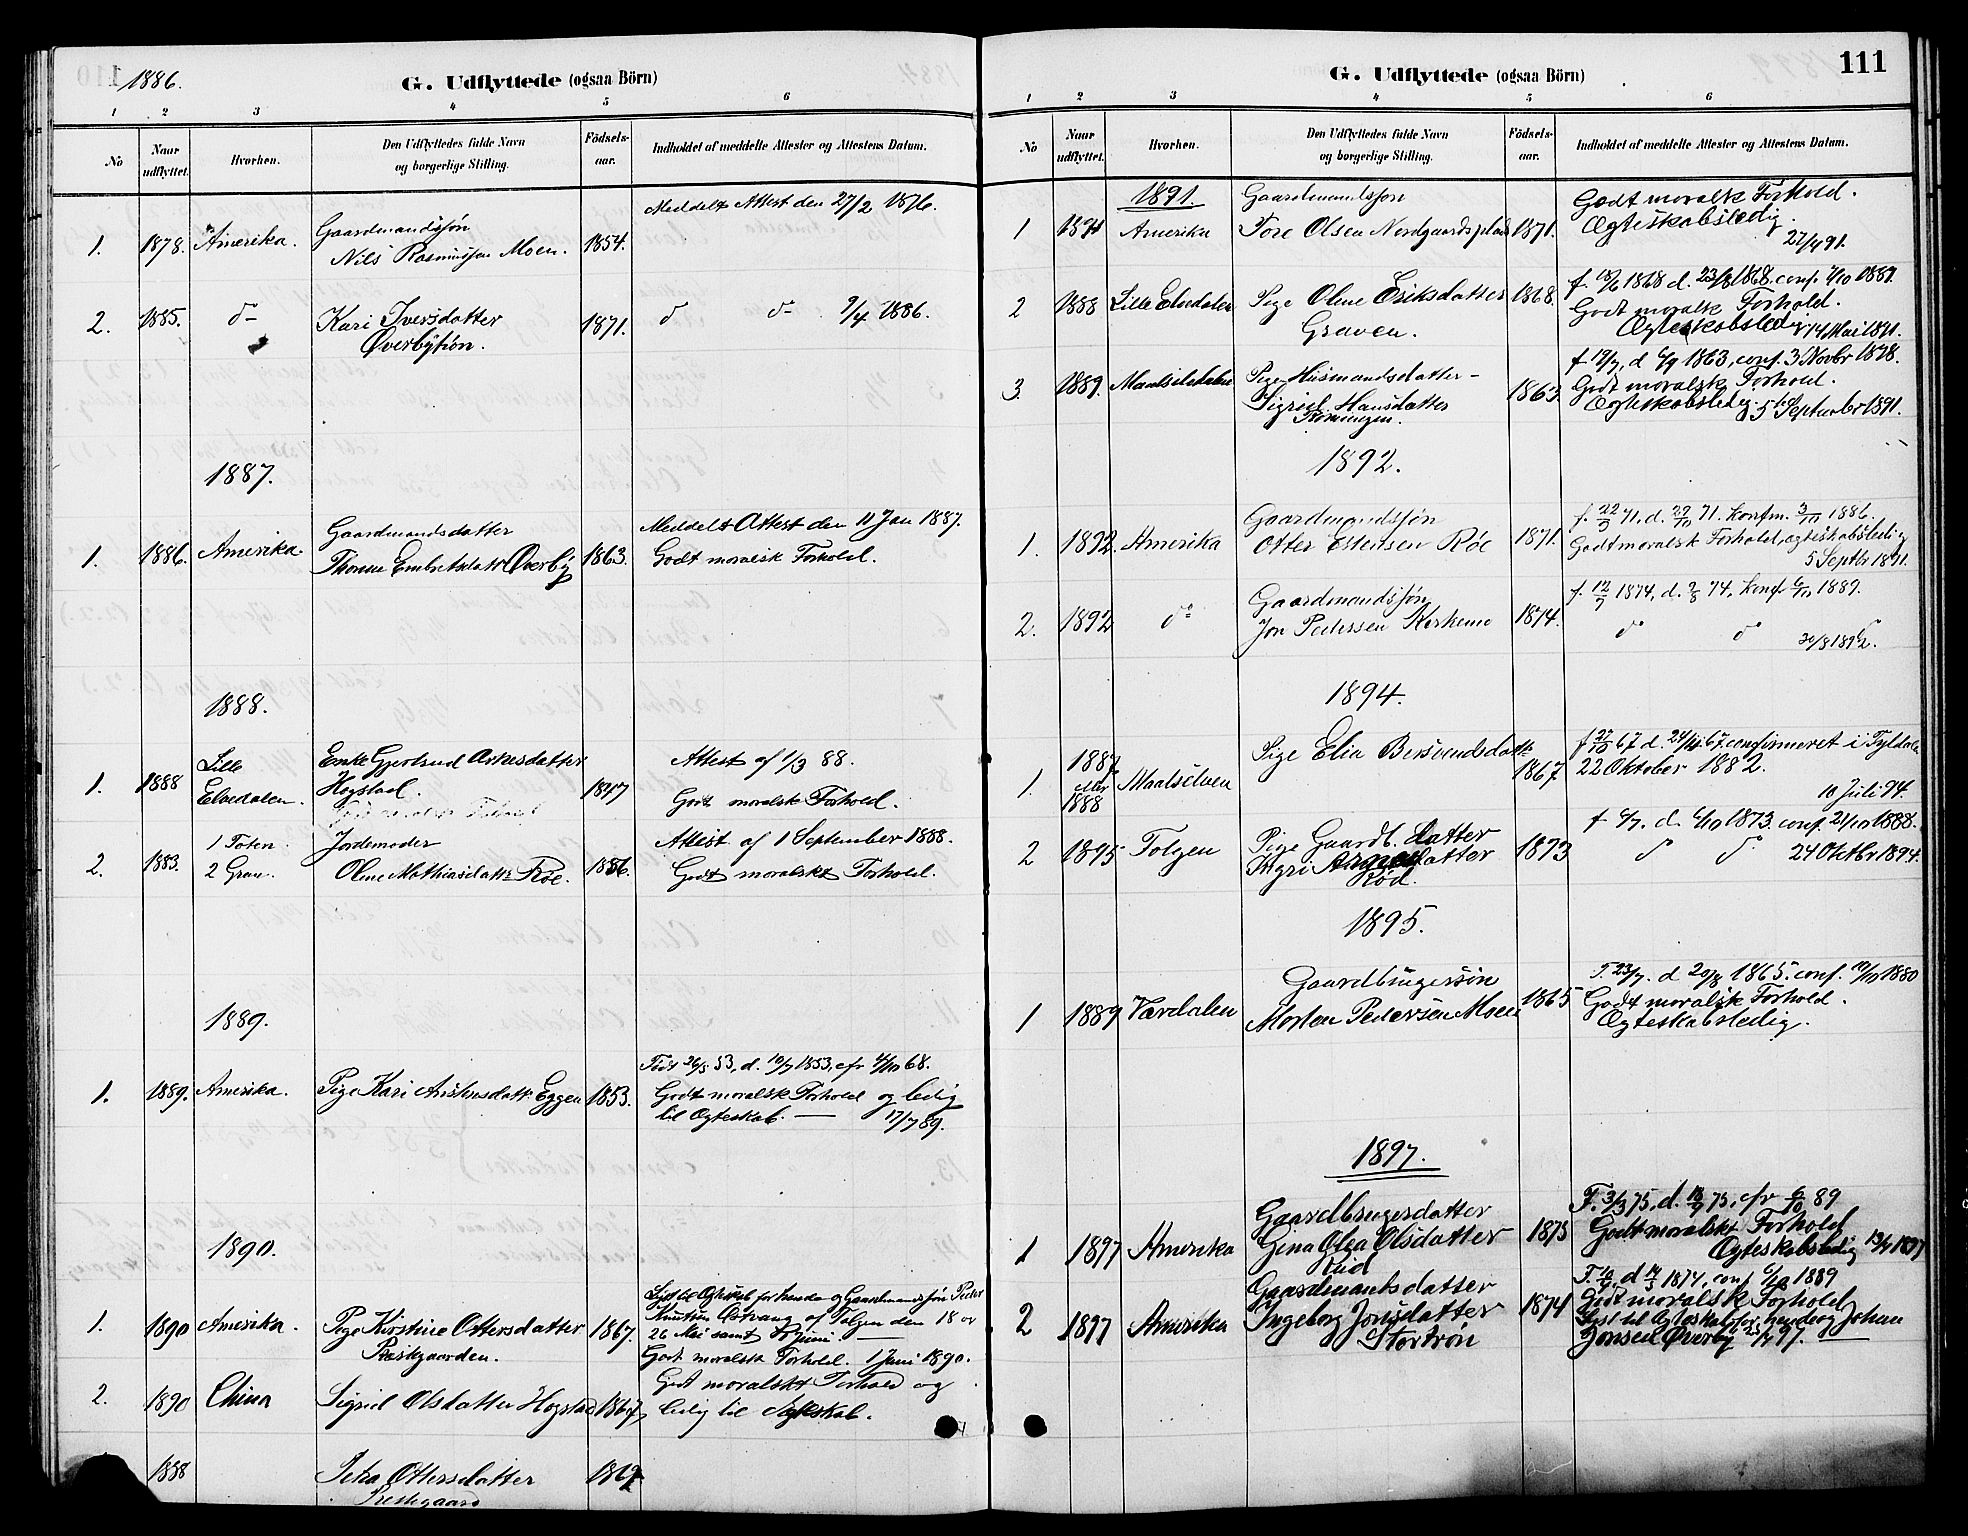 1886.
G. Udflyttede (ogsaa Börn)
1 2 3 4 5 6
No
Naar udflyttet.
Hvorhen.
Den Udflyttedes fulde Navn og borgerlige Stilling.
Födsels-aar.
Indholdet af meddelte Attester og Attestens Datum.
Meddelt Attest den 27/2 1876.
Gaardmandssøn
1. 1878. Amerika. Nils Rasmussen Moen. 1854.
2. 1885. do Kari Iversdatter 1871. do do 9/4 1886.
Øverbytrøn.
1887.
Gaardmandsdatter Meddelt Attest den 11 Jan 1887.
1. 1886. Amerika. Thorine Embretsdatt Øverby 1863. Godt moralsk Forhold.
1888.
Lille Enke Gjertrud Arnesdatter Attest af 1/3 88.
1. 1888 Elvedalen. Hogstad. 1847 Godt moralsk Forhold.
1 Toten. Jordemoder Attest af 1 September 1888.
2. 1883. 2 Gran. Oline Mathiasdatt Røe. 1856. Godt moralskt Forhold.
1889.
Født 26/5 53, d. 10/7 1853, cfr 4/10 68.
1. 1889. Amerika. Pige Kari Austensdatt Eggen 1853. Godt moralsk Forhold og ledig
til Ægteskab. — 17/7 89.
1890.
Lyst til Ægteskab for hende og Gaardmandssøn Peder
Knutsen Østvang af Tolgen den 18 og
1. 1890 Amerika. Pige Kirstine Ottersdatter 1867. 26 Mai samt Juni. —
Præstgaarden. Godt moralsk Forhold. 1 Juni 1890.
Godt moralskt Forhold og
2. 1890 China Sigrid Olsdatter Hogstad 1867, ledig til Ægteskab.
1888 Petra Ottersdatter
Prestegaard
111
G. Udflyttede (ogsaa Börn)
1 2 3 4 5 6
No
Naar udflyttet.
Hvorhen.
Den Udflyttedes fulde Navn og borgerlige Stilling.
Födsels-aar.
Indholdet af meddelte Attester og Attestens Datum.
1891. Gaardmandssøn Godt moralsk Forhold.
1 1891 Amerika Tore Olsen Nordgaardsplads 1871. Ægteskabsledig.
27/4 91.
f. 18/6 1868 d. 23/8 1868. conf. 7/10 1889.
2 1888 Lille Elvedalen Pige Oline Eriksdatter 1868. Godt moralsk Forhold.
Graven. Ægteskabsledig 14 Mai 1891.
f 19/7, d 6/9 1863, conf. 3 Novbr 1878.
3. 1889. Maalselvdalen Pige Husmandsdatter – 1863. Godt moralsk Forhold.
Sigrid Hansdatter Ægteskabsledig. 5 September 1891.
1892.
Gaardmandssøn f. 22/9 71, d. 22/10 71. Konfm. 3/10 1886.
1. 1892. Amerika Otter Estensen Røe 1871. Godt moralsk Forhold, ægteskabsledig
5 Septbr 1891.
Gaardmandssøn f. 12/7 1874, d. 2/8 74, Konf 6/10 1889.
2. 1892 do Jon Pedersen Kirkemo 1874. do do
20/8 1892.
1894.
1887 Pige Elia Bersvendsdatt f 27/10 67 d. 24/11 67. confirmeret i Tyldalen
1. eller Maalselven 1867 22 Oktober 1882.
1888 10 Juli 94.
Pige Gaardb. datter f 6/7. d. 6/10 1873. conf. 21/10 1888.
2 1895 Tolgen Ingri Arnesdatter 1873 do do 24 Oktbr 1894.
Rød.
1895.
Gaardbrugersøn F. 23/7. d 20/8 1865. conf. 10/10 1880
1 1889 Værdalen Morten Pedersen Moen 1865 Godt moralsk Forhold.
Ægteskabsledig.
1897.
Gaardbrugersdatter F. 3/3 75, d. 18/4 75, cfr 6/10 89
1 1897 Amerika Gina Olea Olsdatter 1875 Godt moralskt Forhold
Ægteskabsledig 13/4 1897
Gaardmandsdatter 1874, conf 6/10 1889
2 1897 Amerika Ingeborg Jonsdatter 1874 Godt moralsk Forhold
Stortrøn Lyst til Ægteskab for hende og Johan
Jonsen Øverby 97.